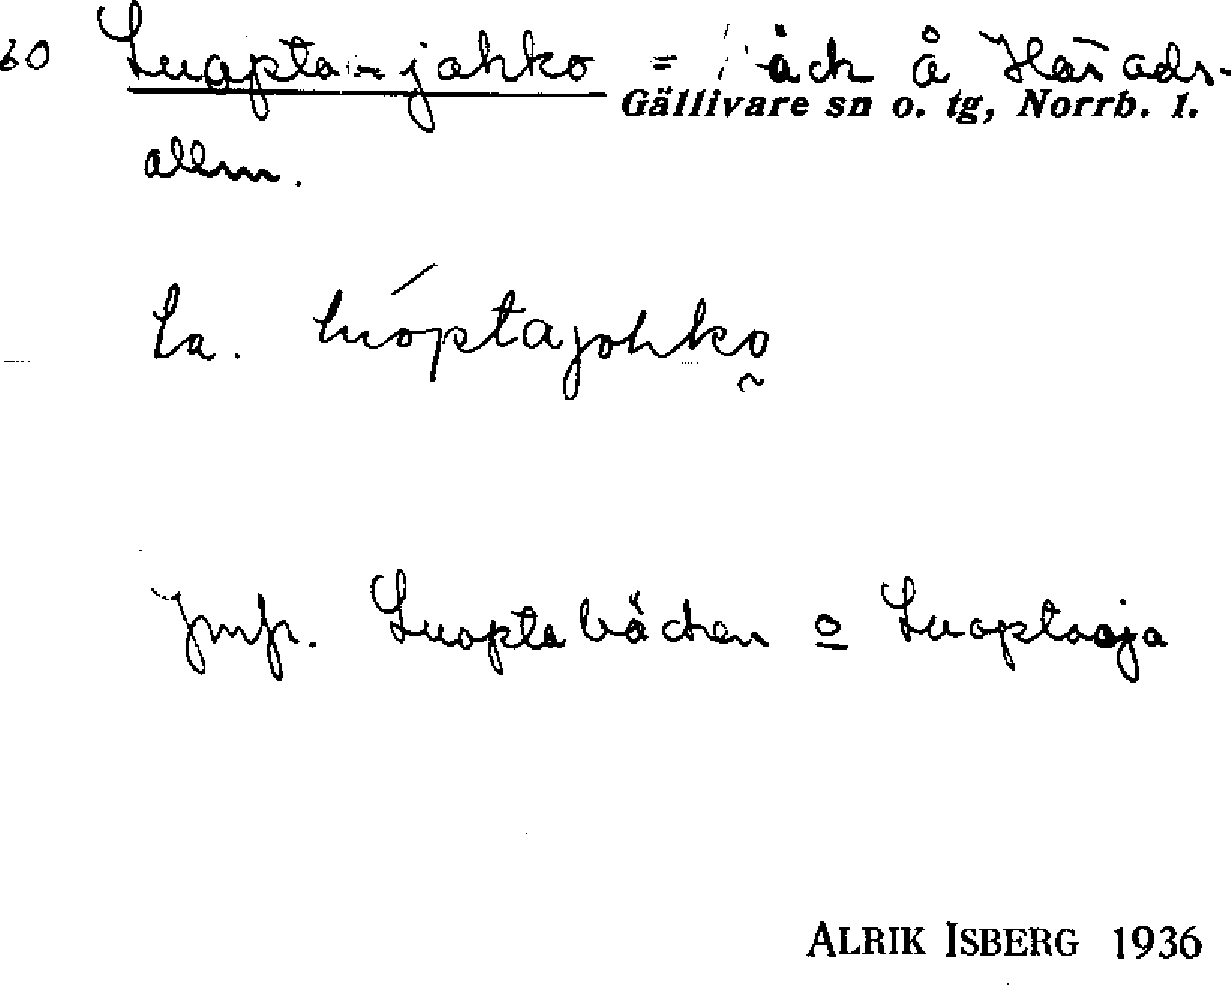 60 Luopta-jahko = bäck å Härads-
Gällivare sn o. tg, Norrb. l.
allm.
La. luóptajohko̰
Jmfr. Luoptabäcken o Luoptaoja
ALRIK ISBERG 1936